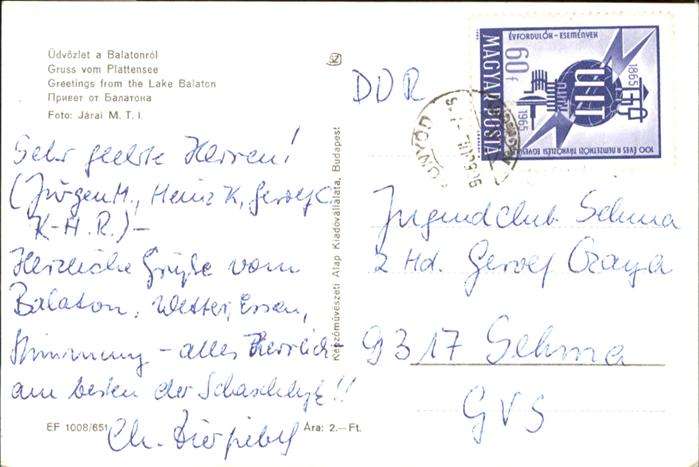 Üdvözlet a Balatonról
Gruss vom Plattensee
Greetings from the Lake Balaton
Привет от Балатона
Foto: Járai M. T. I.
Sehr geehrte Herren!
(Jürgen H., Heinz K, Gerolf C
K-H. R.)-
Herzliche Grüße vom
Balaton. Wetter, Essen,
Stimmung - alles herrlich
am besten der Schaschlyk!!
Ch.
EF 1008/651
Ára: 2.— Ft.
Képzőművészeti Alap Kiadóvállalata, Budapest
DDR
ÉVFORDULÓK - ESEMÉNYEK
MAGYAR POSTA
60f
1865
1965
UIT
100 ÉVES A NEMZETKÖZI TÁVKÖZLÉSI EGYESÜLET
Jugendclub Sehma
z Hd. Gerolf
9317 Sehma
GVS